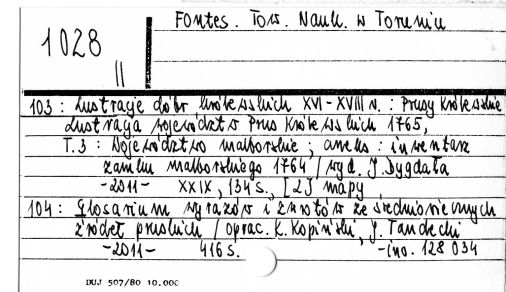 Fontes. Tow. Nauk. w Toruniu
1028
||
103 : Lustracje dóbr królewskich XVI-XVIII w. : Prusy Królewskie
Lustracja województw Prus Królewskich 1765,
T.3 : Województwo malborskie ; aneks : inwentarz
zamku malborskiego 1764 / wyd. J. Dygdała
-2011- XXIX, 134 s., [2] mapy
104 : Glosarium wyrazów i zwrotów ze średniowiecznych
źródeł pruskich / oprac. K. Kopiński, J. Tandecki
-2011- 416 s. -ino. 128 034
DUJ 507/80 10.000